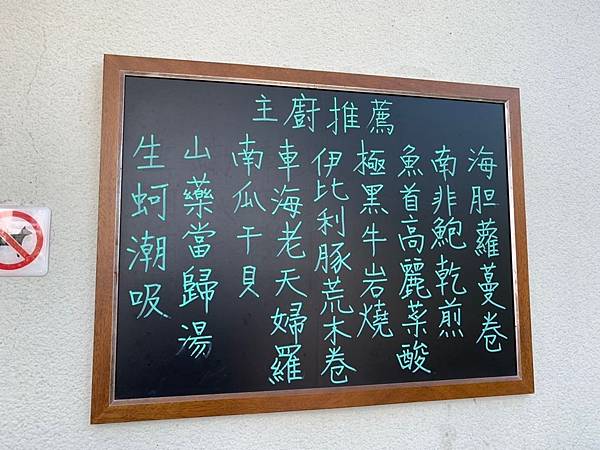 主廚推薦
海胆蘿蔓卷
南非鮑乾煎
魚首高麗菜酸
極黑牛岩燒
伊比利豚荒木卷
車海老天婦羅
南瓜干貝
山藥當歸湯
生蚵潮吸